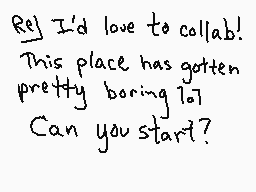 Re] I'd love to collab!
This place has gotten
pretty boring lol
Can you start?